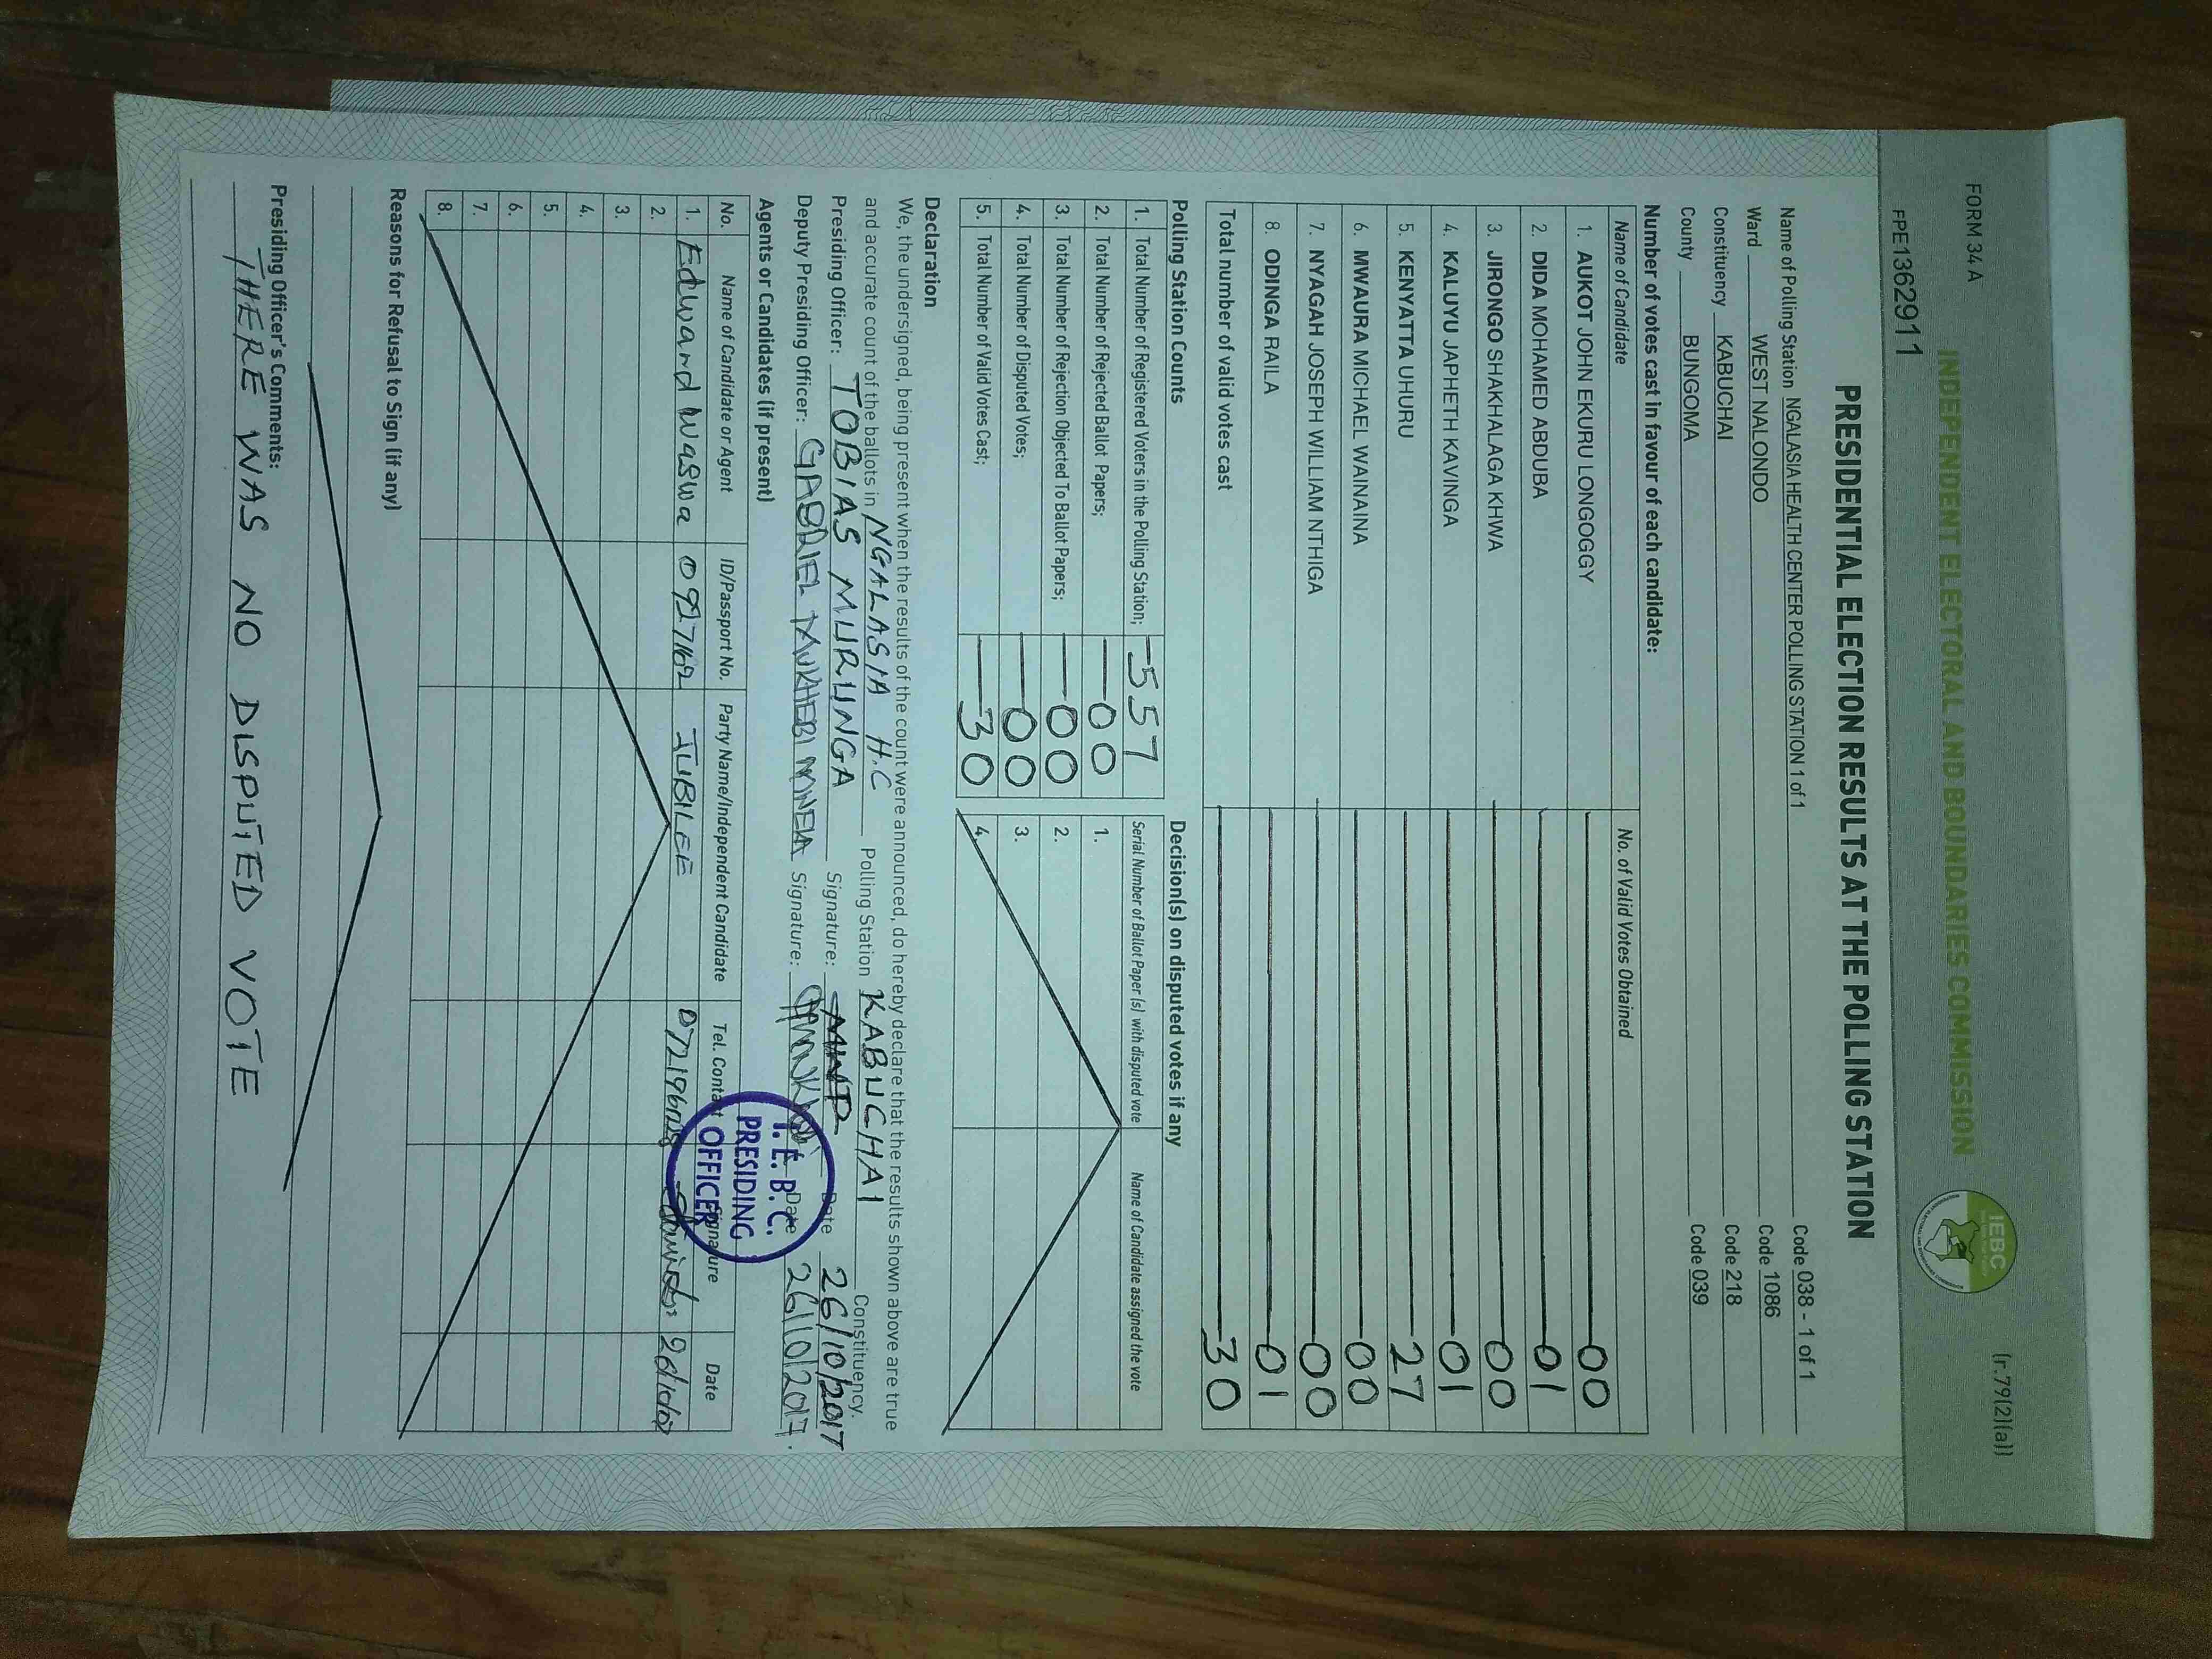 FORM 34 A
(r.79(2)(a))
INDEPENDENT ELECTORAL AND BOUNDARIES COMMISSION
IEBC
FPE1362911
PRESIDENTIAL ELECTION RESULTS AT THE POLLING STATION
Name of Polling Station NGALASIA HEALTH CENTER POLLING STATION 1 of 1 Code 038 - 1 of 1
Ward WEST NALONDO Code 1086
Constituency KABUCHAI Code 218
County BUNGOMA Code 039
Number of votes cast in favour of each candidate:
Name of Candidate No. of Valid Votes Obtained
1. AUKOT JOHN EKURU LONGOGGY 00
2. DIDA MOHAMED ABDUBA 01
3. JIRONGO SHAKHALAGA KHWA 00
4. KALUYU JAPHETH KAVINGA 01
5. KENYATTA UHURU 27
6. MWAURA MICHAEL WAINAINA 00
7. NYAGAH JOSEPH WILLIAM NTHIGA 00
8. ODINGA RAILA 01
Total number of valid votes cast 30
Polling Station Counts
1. Total Number of Registered Voters in the Polling Station; 557
2. Total Number of Rejected Ballot Papers; 00
3. Total Number of Rejection Objected To Ballot Papers; 00
4. Total Number of Disputed Votes; 00
5. Total Number of Valid Votes Cast; 30
Decision(s) on disputed votes if any
Serial Number of Ballot Paper (s) with disputed vote Name of Candidate assigned the vote
1.
2.
3.
4.
Declaration
We, the undersigned, being present when the results of the count were announced, do hereby declare that the results shown above are true
and accurate count of the ballots in NGALASIA H.C Polling Station KABUCHAI Constituency.
Presiding Officer: TOBIAS MURUNGA Signature: Date 26/10/2017
Deputy Presiding Officer: GABRIEL Signature: Date 26/10/2017.
I.E.B.C.
PRESIDING
OFFICER
Agents or Candidates (if present)
No. Name of Candidate or Agent ID/Passport No. Party Name/Independent Candidate Tel. Contact Signature Date
1. Edward Waswa JUBILEE
2.
3.
4.
5.
6.
7.
8.
Reasons for Refusal to Sign (if any)
Presiding Officer's Comments:
THERE WAS NO DISPUTED VOTE